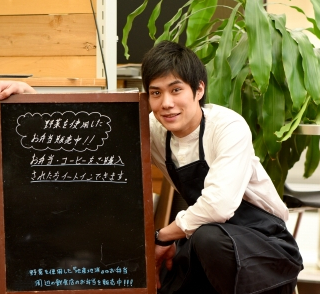 野菜を使用した
お弁当販売中!!
お弁当・コーヒーをご購入
された方イートインできます。
野菜を使用した"地産地消"のお弁当
周辺の飲食店のお弁当を販売中!!!